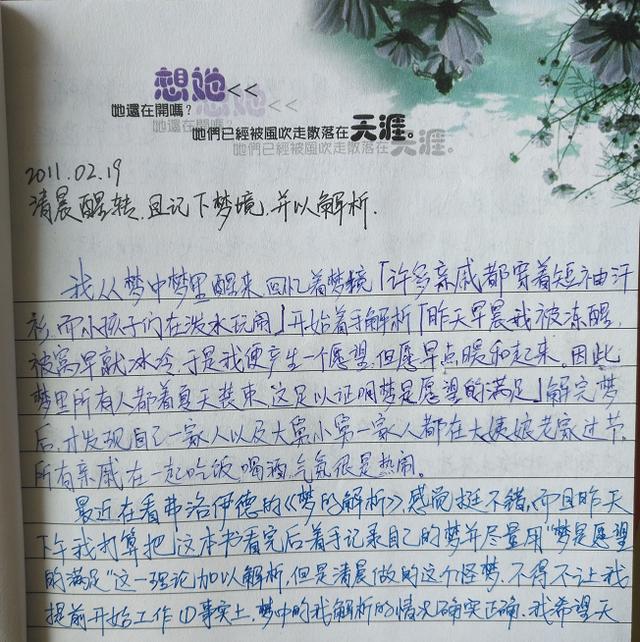 想她<<
她還在開嗎?
她們已經被風吹走散落在天涯。
2011.02.19
清晨醒转,且记下梦境,并以解析.
我从梦中梦里醒来,回忆着梦境「许多亲戚都穿着短袖汗
衫,而小孩子们在泼水玩闹」开始着手解析「昨天早晨我被冻醒
被窝早就冰冷,于是我便产生一个愿望,但愿早点暖和起来。因此
梦里所有人都着夏天装束,这足以证明梦是愿望的满足」解完梦
后,才发现自己一家人以及大舅小舅一家人都在大姨娘老家过节,
所有亲戚在一起吃饭,喝酒,气氛很是热闹。
最近在看弗洛伊德的《梦的解析》,感觉挺不错,而且昨天
下午我打算把这本书看完后着手记录自己的梦并尽量用“梦是愿望
的满足”这一理论加以解析,但是清晨做的这个怪梦,不得不让我
提前开始工作①事实上,梦中的我解析的情况确实正确,我希望天